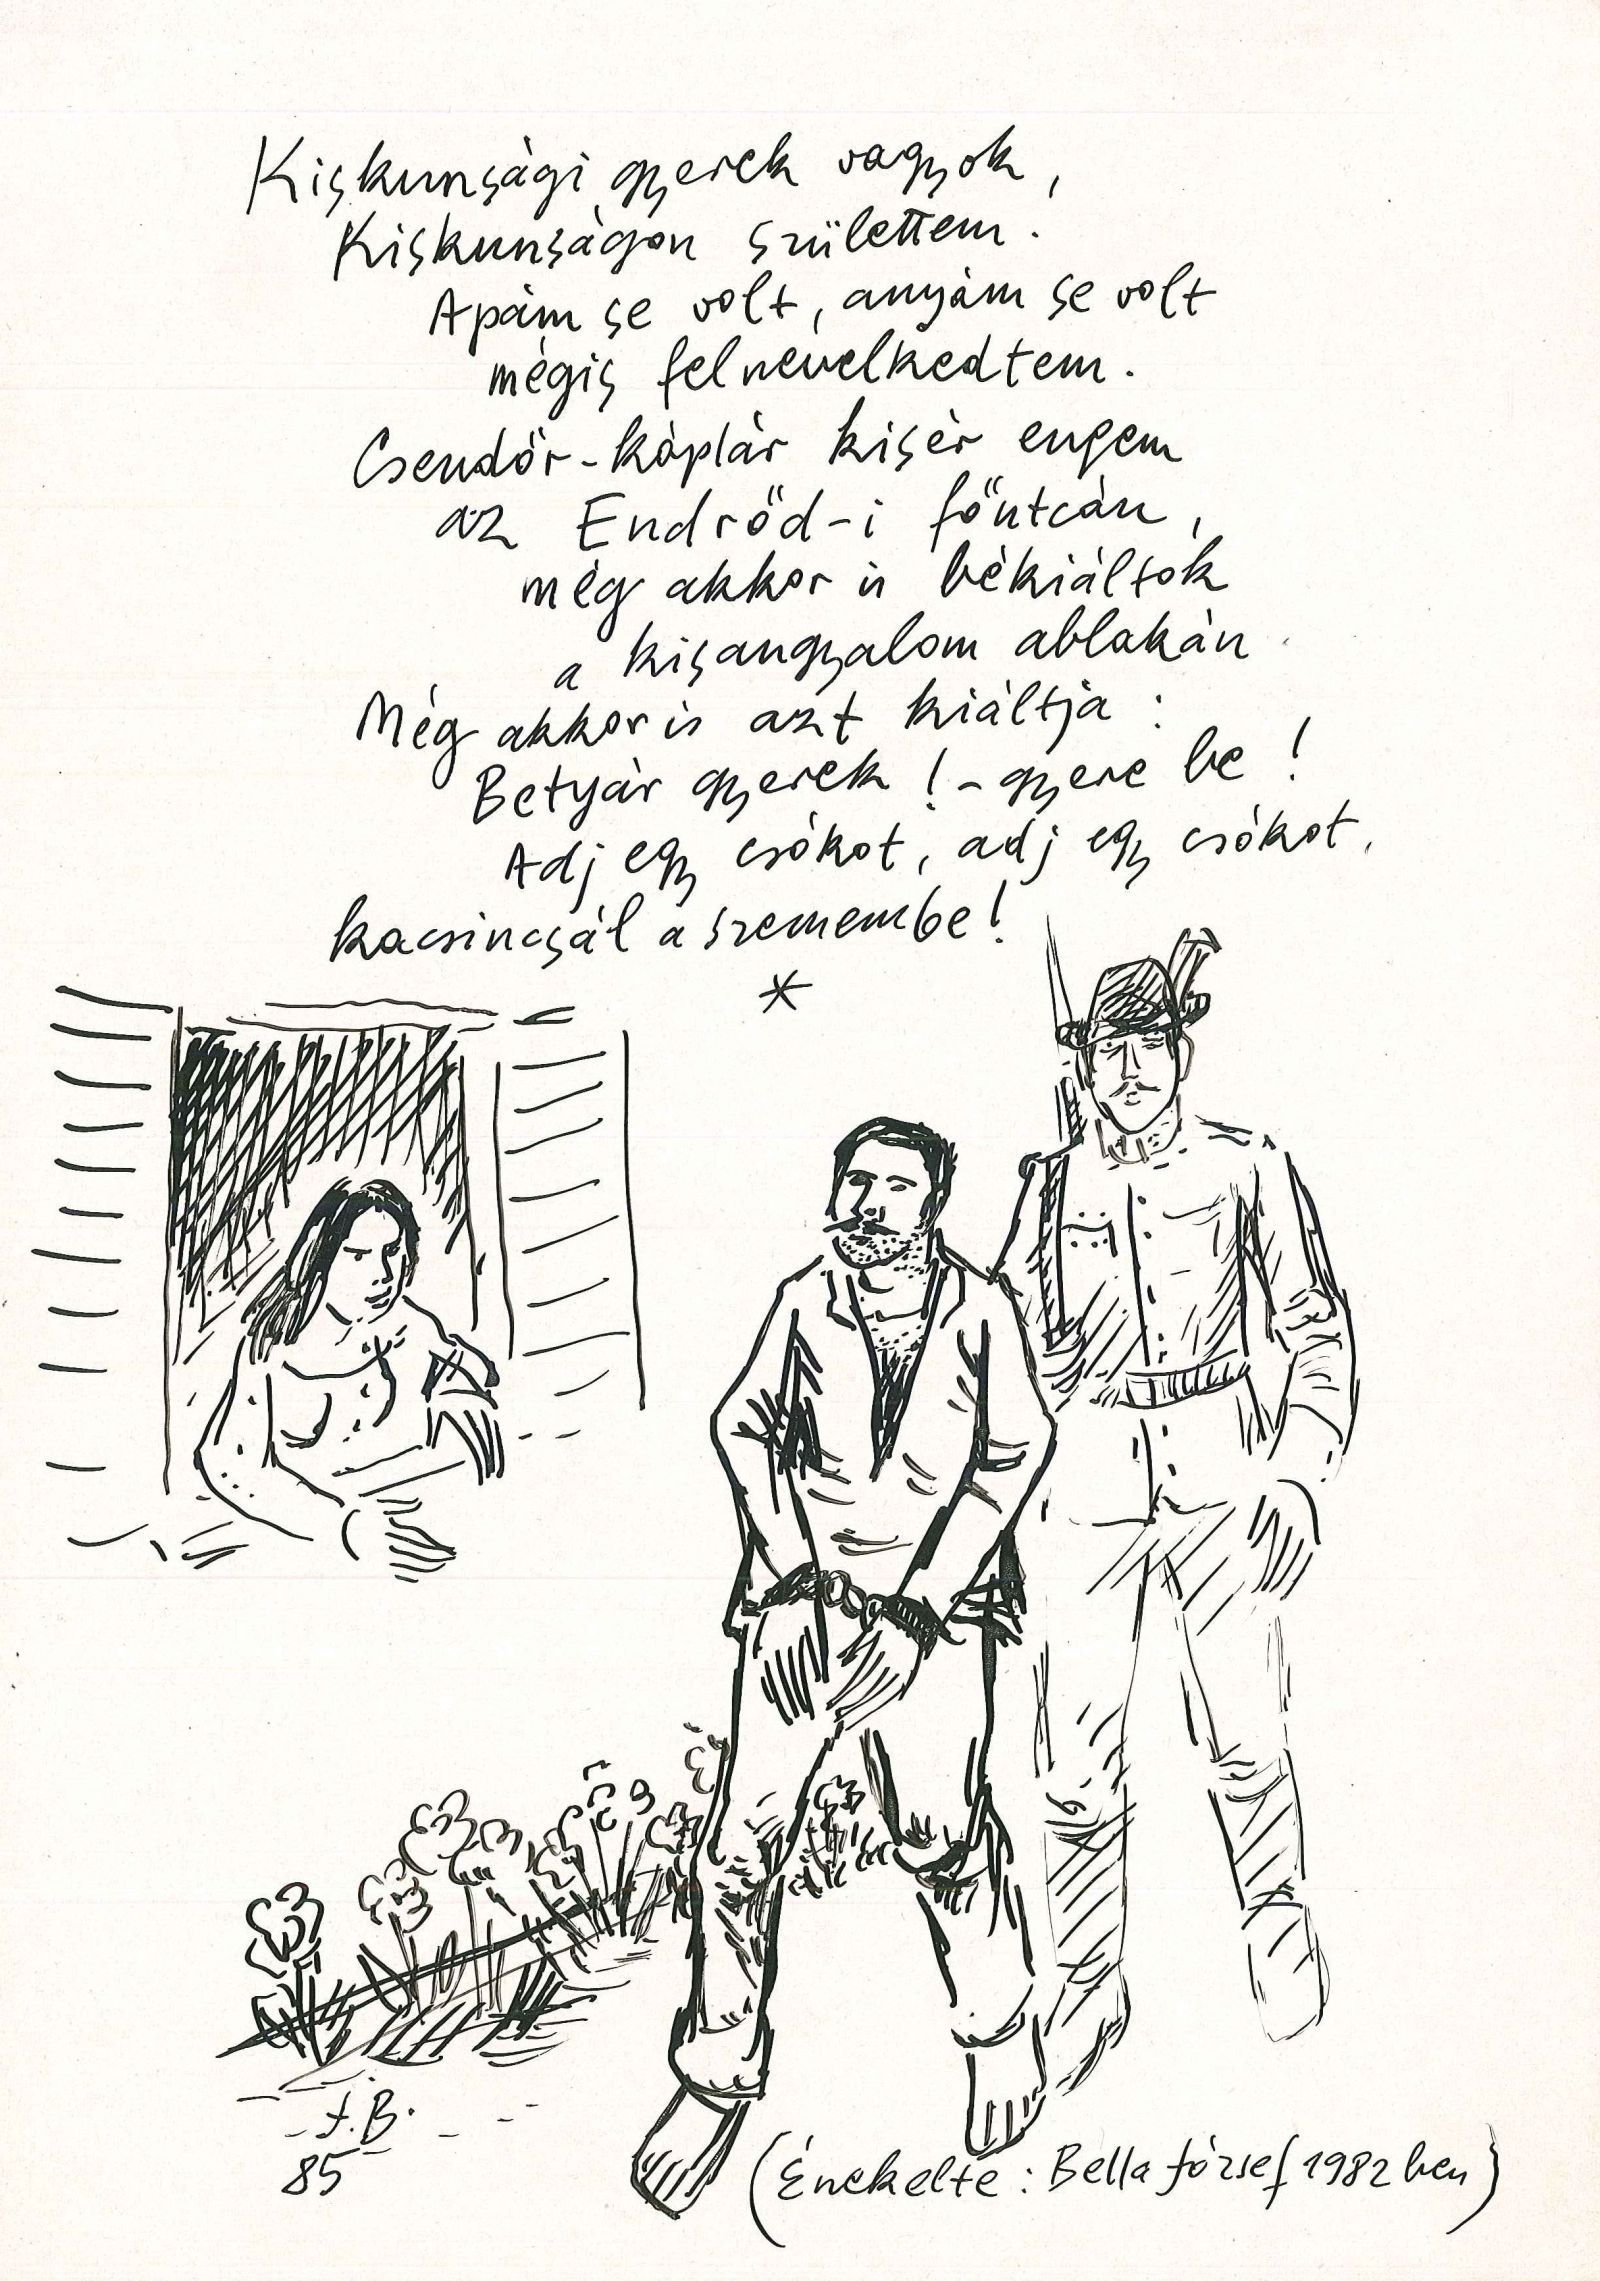 Kiskunsági gyerek vagyok,
Kiskunságon születtem.
Apám se volt, anyám se volt
mégis felnevelkedtem.
Csendőr-káplár kisér engem
az Endrőd-i főutcán,
még akkor is békiáltok
a kisangyalom ablakán
Még akkor is azt kiáltja:
Betyár gyerek! - gyere be!
Adj egy csókot, adj egy csókot,
kacsincsál a szemembe!
*
J.B.
85
(Énekelte: Bella József 1982 ben)